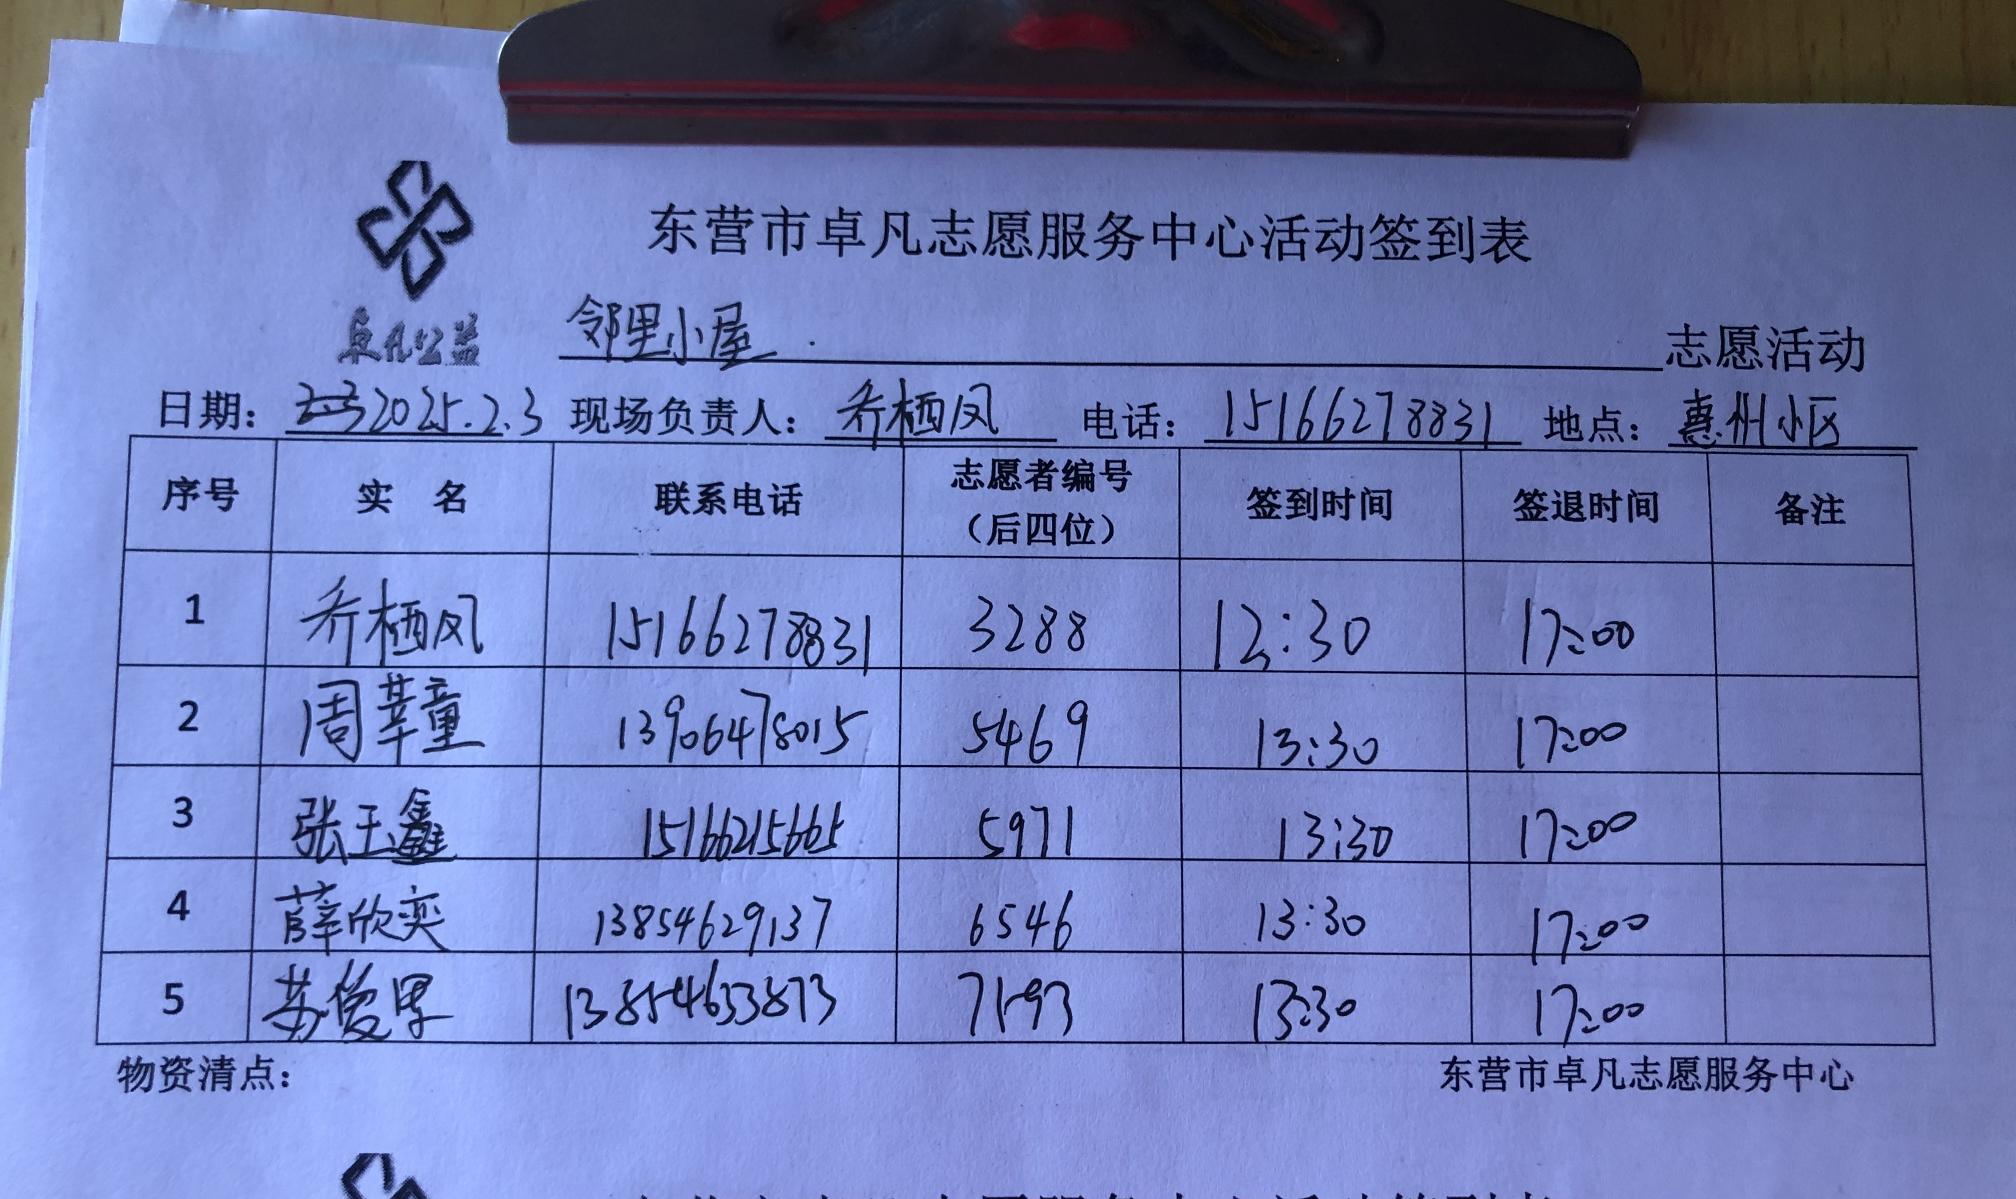 东营市卓凡志愿服务中心活动签到表
卓凡公益
邻里小屋 志愿活动
日期: 2025.2.3 现场负责人: 乔栖凤 电话: 15166278831 地点: 惠州小区
序号 实 名 联系电话 志愿者编号 签到时间 签退时间 备注
（后四位）
1 乔栖凤 15166278831 3288 12:30 17:00
2 周莘童 13906478015 5469 13:30 17:00
3 张玉鑫 15166215665 5971 13:30 17:00
4 薛欣奕 13854629137 6546 13:30 17:00
5 苏俊 13854633873 7193 13:30 17:00
物资清点: 东营市卓凡志愿服务中心